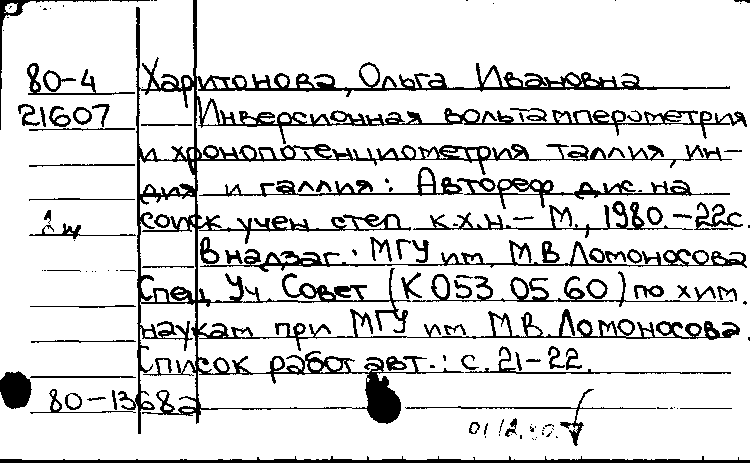 80-4 Харитонова, Ольга Ивановна
21607 Инверсионная вольтамперометрия
и хронопотенциометрия таллия, ин-
дия и галлия: Автореф. дис. на
соиск. учен. степ. к.х.н. - М., 1980. - 22с.
В надзаг.: МГУ им. М.В. Ломоносова
Спец. Уч. Совет (К 053.05.60) по хим.
наукам при МГУ им. М.В. Ломоносова.
Список работ авт.: с. 21-22.
80-13682